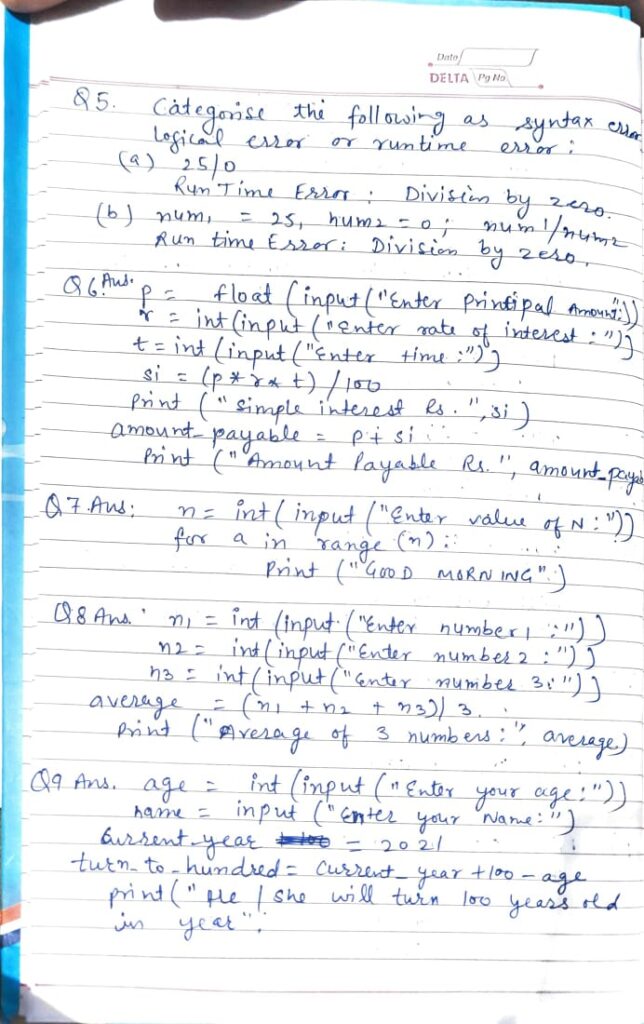 Date
DELTA Pg No.
Q5. Categorise the following as syntax error
logical error or runtime error :
(a) 25/0
Run Time Error : Division by zero.
(b) num1 = 25, num2 = 0; num1/num2
Run time Error: Division by zero.
Q6 Ans. p = float (input ("Enter Printipal Amount:"))
r = int (input ("Enter rate of interest : "))
t = int (input ("Enter time :"))
si = (p * r * t) / 100
Print (" Simple interest Rs . ", si )
amount_payable = p + si
Print (" Amount Payable Rs. ", amount_payab
Q7.Ans: n = int ( input ("Enter value of N : "))
for a in range (n) :
Print ("GOOD MORNING")
Q8 Ans. n1 = int (input ("Enter number 1 :"))
n2 = int (input ("Enter number 2 : "))
n3 = int (input ("Enter number 3: "))
average = (n1 + n2 + n3) / 3.
Print ("Average of 3 numbers : ", average)
Q9 Ans. age = int (input ("Enter your age : "))
name = input ("Enter your Name: ")
Current_year = 2021
turn_to_hundred = Current_year +100 - age
print (" He / She will turn 100 years old
in year".